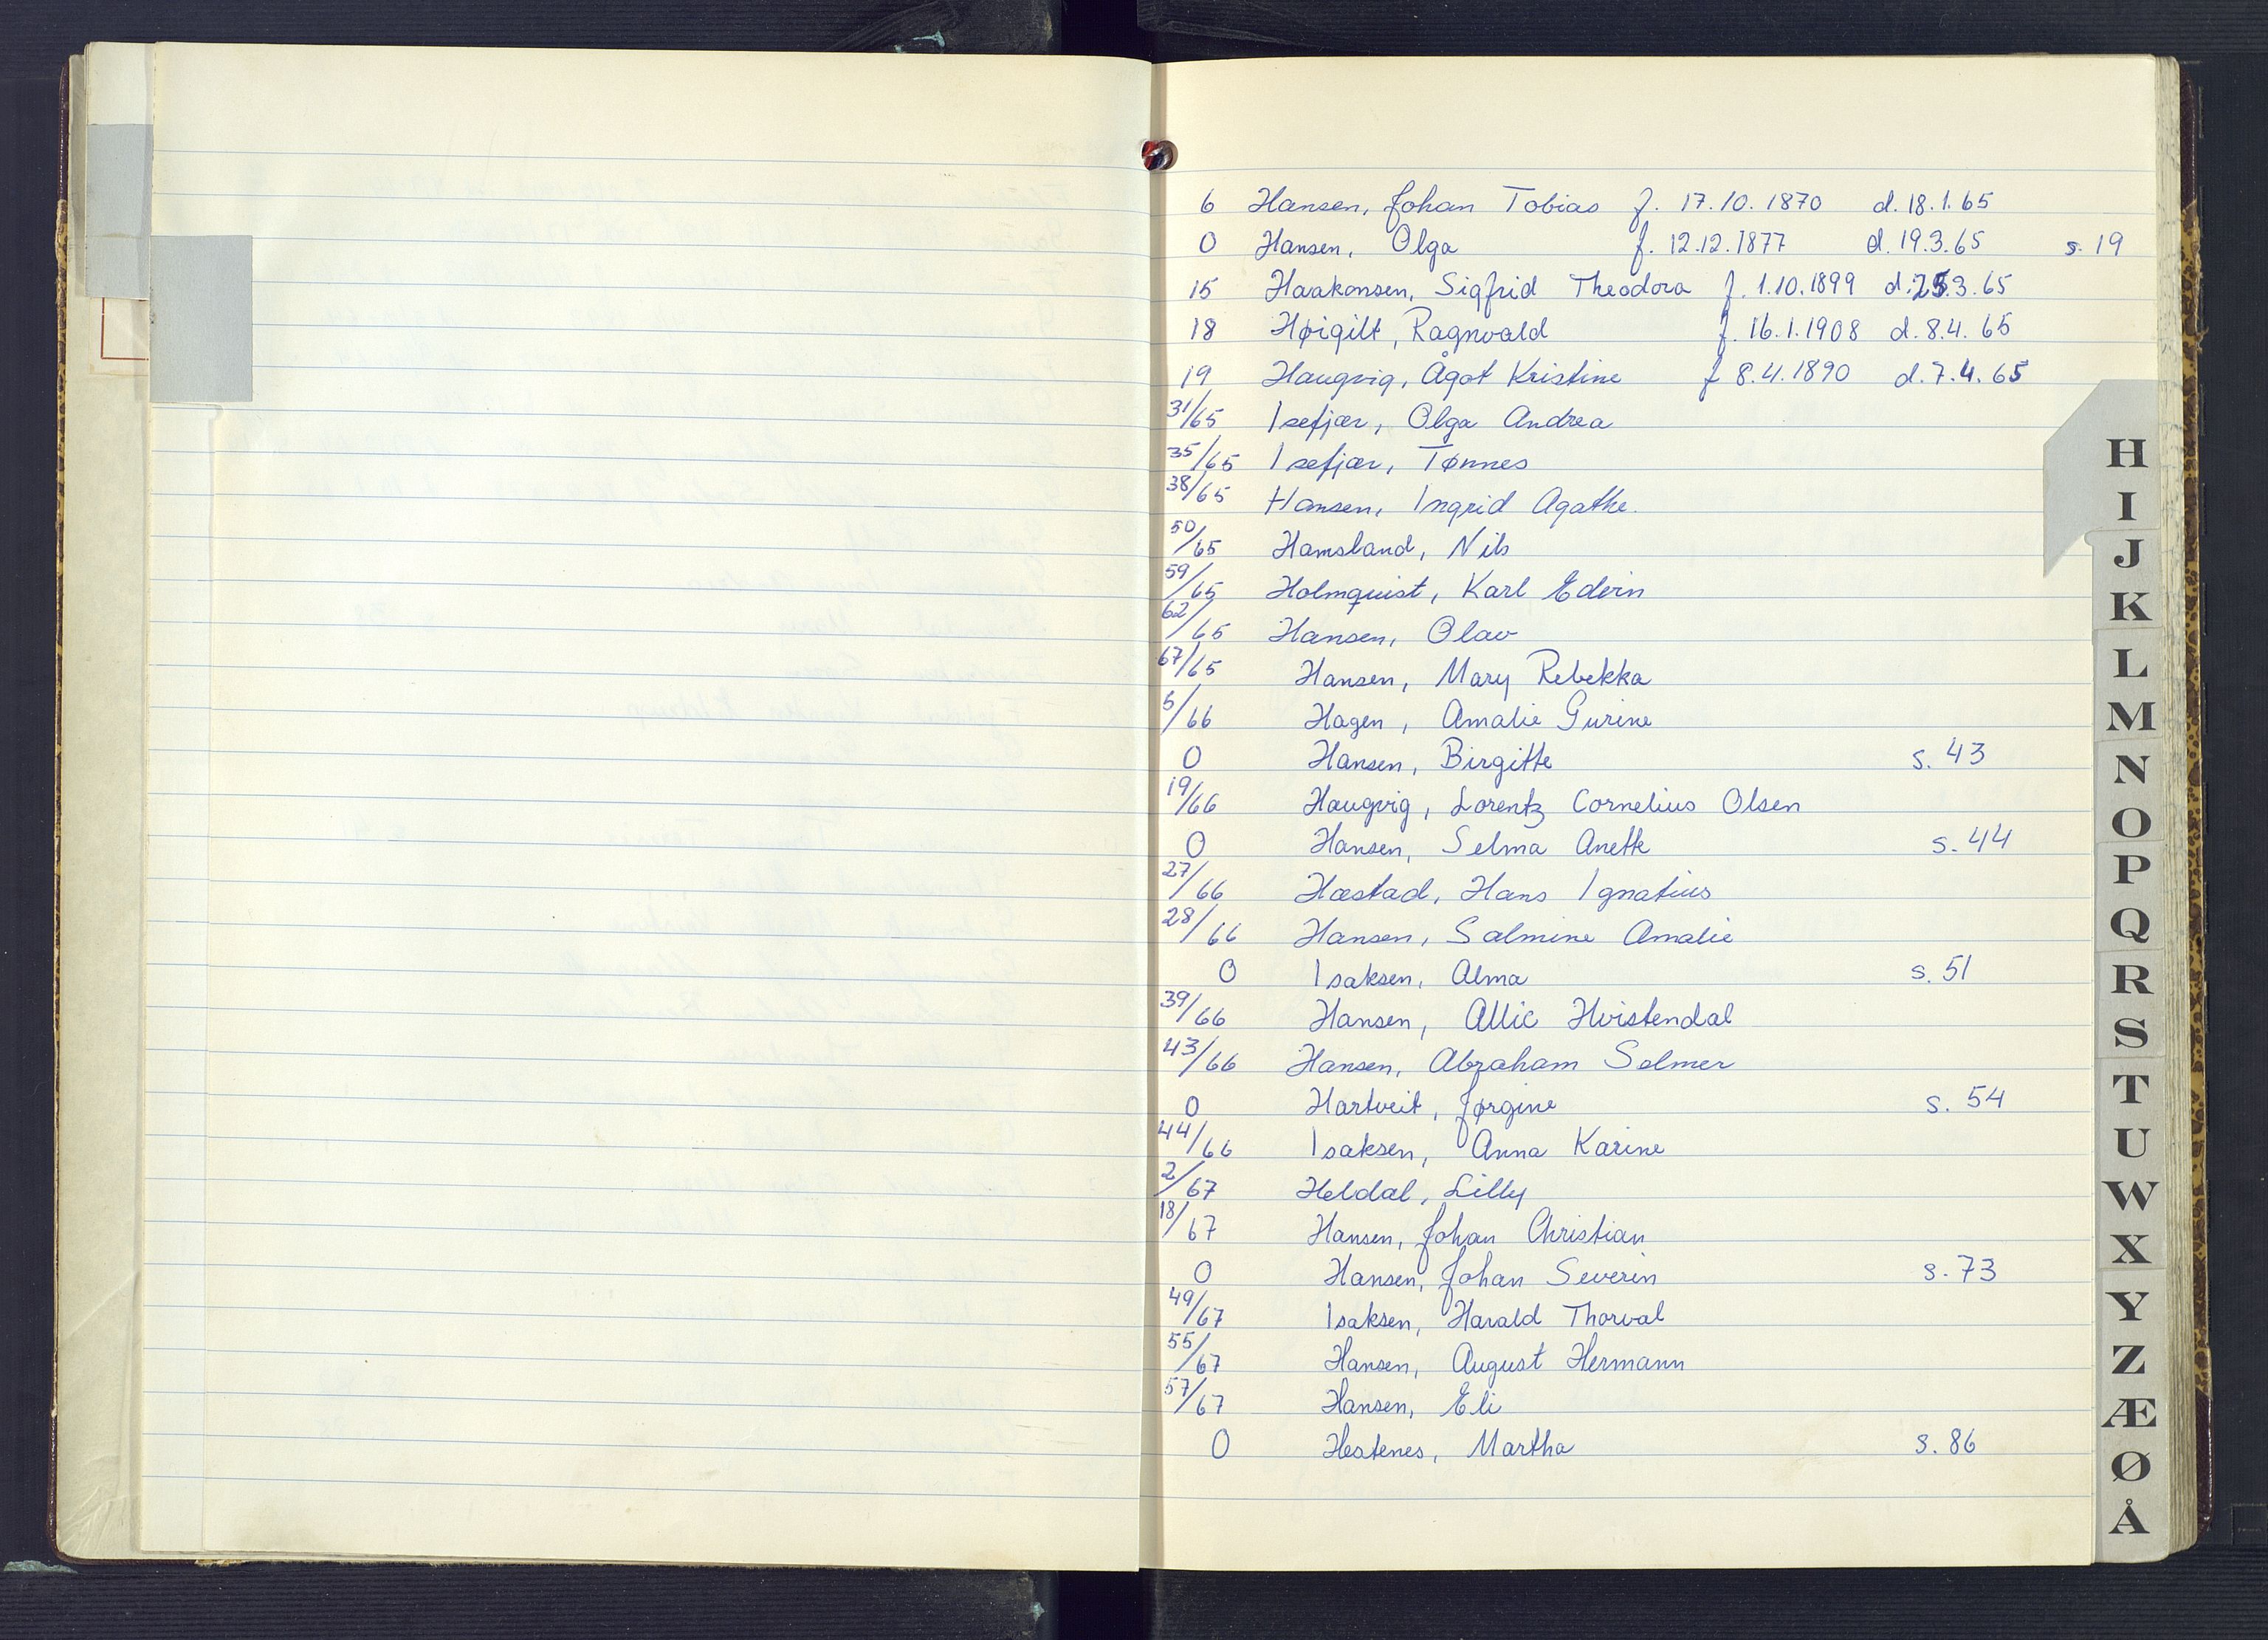 6 Hansen, Johan Tobias f. 17.10.1870 d. 18.1.65
0 Hansen, Olga f. 12.12.1877 d. 19.3.65 s. 19
15 Haakonsen, Sigfrid Theodora f. 1.10.1899 d. 25.3.65
18 Høigilt, Ragnvald f. 16.1.1908 d. 8.4.65
19 Haugvig, Ågot Kristine f 8.4.1890 d. 7.4.65
31/65 Isefjær, Olga Andrea
35/65 Isefjær, Tønnes
38/65 Hansen, Ingrid Agathe.
50/65 Hamsland, Nils
59/65 Holmquist, Karl Edvin
62/65 Hansen, Olav
67/65 Hansen, Mary Rebekka
5/66 Hagen, Amalie Gurine
0 Hansen, Birgitte s. 43
19/66 Haugvig, Lorentz Cornelius Olsen
0 Hansen, Selma Anette s. 44
27/66 Hæstad, Hans Ignatius
28/66 Hansen, Salmine Amalie
0 Isaksen, Alma s. 51
39/66 Hansen, Allic Hvistendal
43/66 Hansen, Abraham Salmer
0 Hartveit, Jørgine s. 54
44/66 Isaksen, Anna Karine
2/67 Heldal, Lilly
18/67 Hansen, Johan Christian
0 Hansen, Johan Severin s. 73
49/67 Isaksen, Harald Thorval
55/67 Hansen, August Hermann
57/67 Hansen, Eli
0 Hestenes, Martha s. 86
H
I
J
K
L
M
N
O
P
Q
R
S
T
U
W
X
Y
Z
Æ
Ø
Å